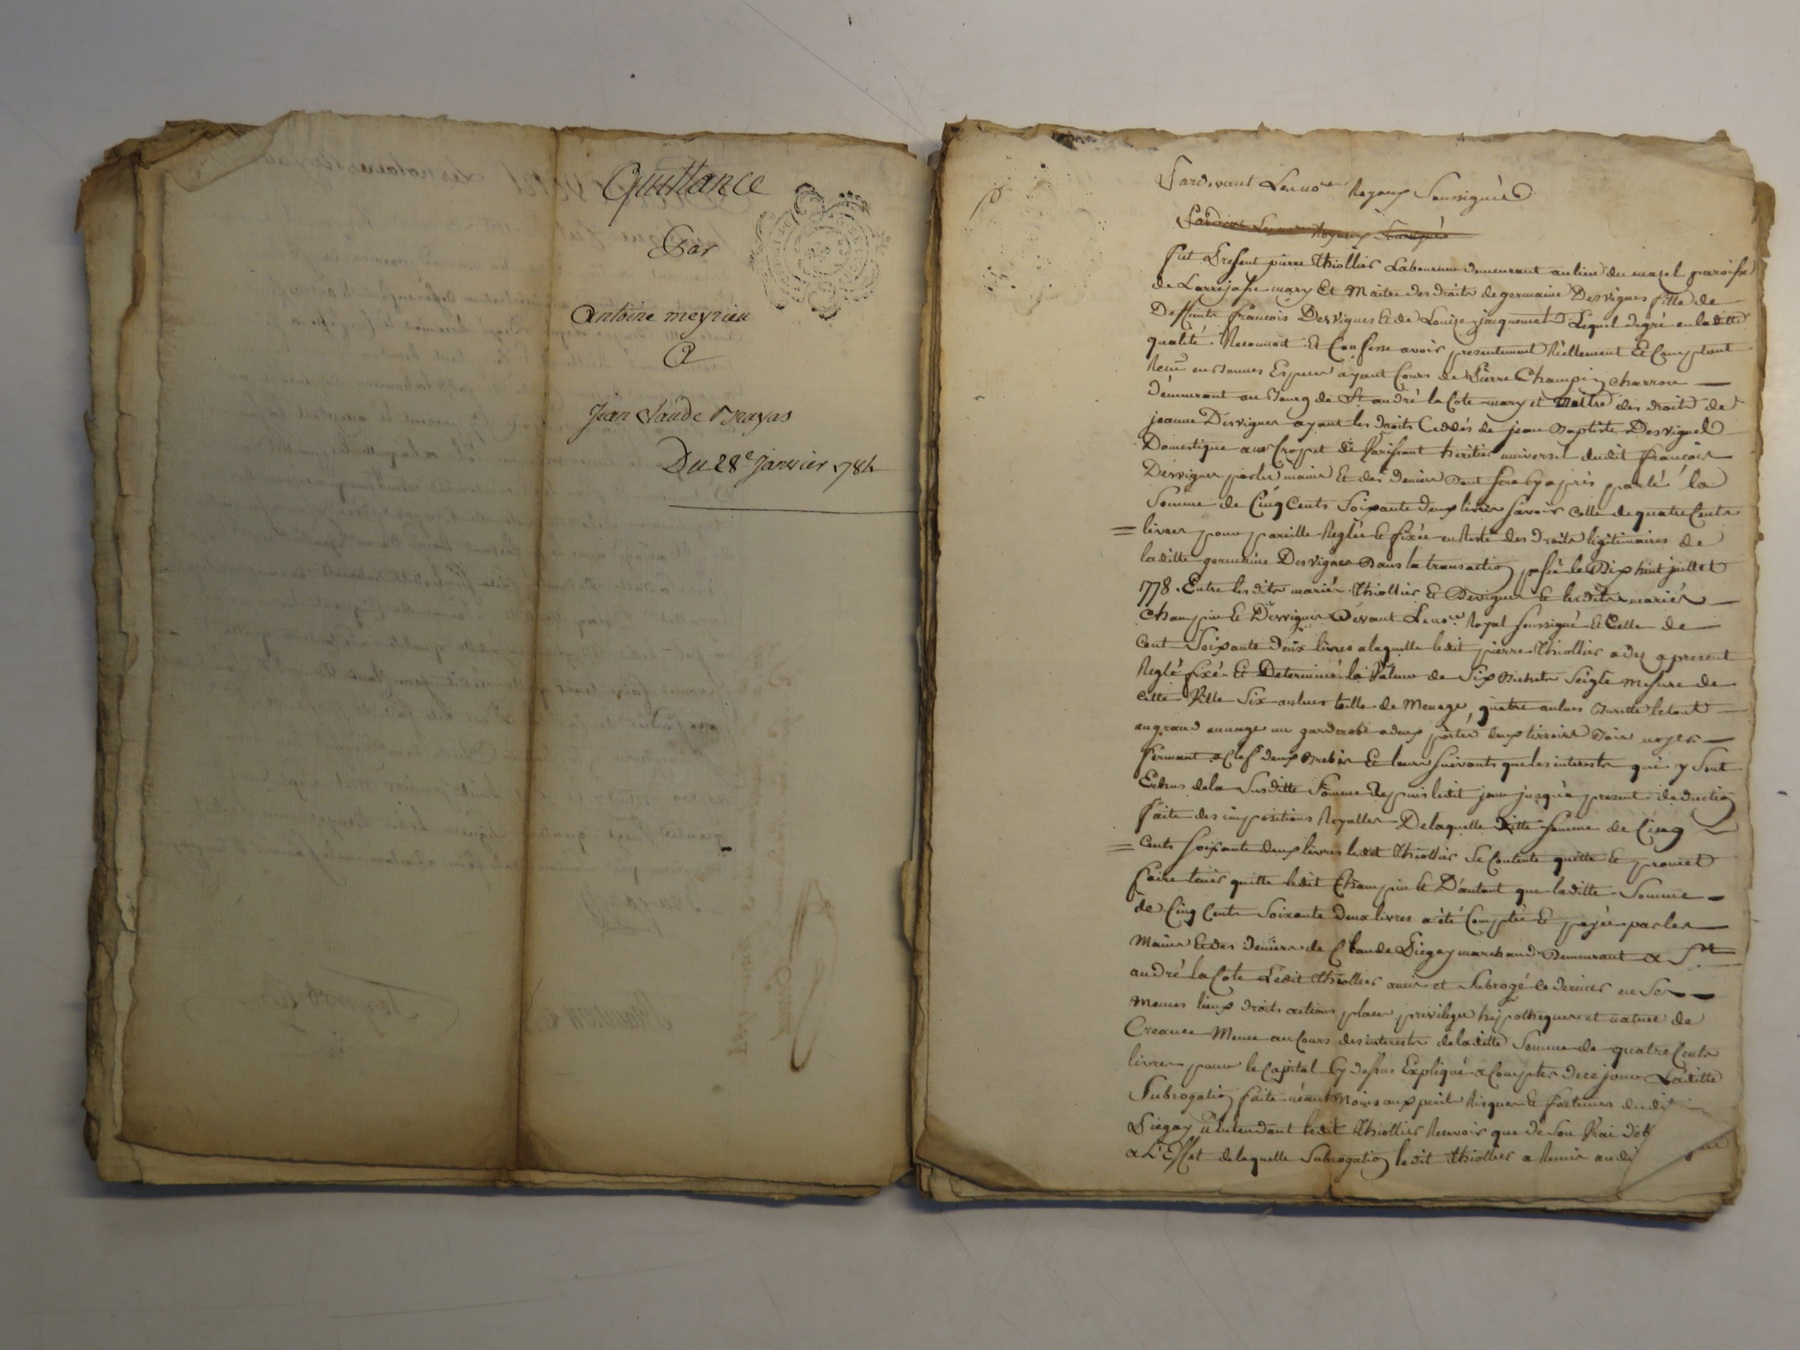 Quittance
Par
Antoine meyrieu
A
Jean Claude
Du 28e Janvier 1784
Pardevant Les nores Royaux Soussignés
fut Present pierre Thiollier Laboureur demeurant au lieu du mazel paroisse
de Larrajasse mary Et Maitre des droits de germaine Desvignes fille de
Deffunts francois Desvignes Et de Louise jacquemet Lequel de gré en laditte
qualité Reconnoit Et Confesse avoir presentement Réellement Et Comptant
Receu en bonnes Especes ayant Cours de Pierre Champin charron
demeurant au Bourg de St andré la Cote mary et Maitre des droits de
jeanne Desvignes ayant les droits Ceddés de jean Baptiste Desvignes
Domestique au de heritier universel dudit francois
Desvignes par les mains Et des deniers dont sera cy après parlé la
Somme de Cinq Cents Soixante deux livres savoir celle de quatre Cents
livres pour pareille Reglée Et fixée en Reste des droits legitimaires de
laditte germaine Desvignes dans la transaction passée le dix huit juillet
1778. Entre lesdits mariés Thiollier Et Desvignes Et lesdits mariés
Champin Et Desvignes devant Le nore Royal soussigné Et Celle de
Cent Soixante deux livres a laquelle ledit pierre Thiollier a des a present
Reglé fixé Et Determiné la Valeur de Six Bichets Seigle mesure de
cette Ville Six aulnes toille de Menage, quatre aulnes le tout
au grand aunage un garderobe a deux portes deux tirroirs Bois noyer
fermant a Clef deux Brebis Et leurs suivants que les interests qui y Sont
Echus de la Susditte Somme Depuis ledit jour jusqu'a present deduction
faite des impositions Royalles De laquelle ditte somme de Cinq
Cents soixante deux livres ledit Thiollier Se Contente quitte Et promet
faire tenir quitte ledit Champin Et D'autant que laditte Somme
de Cinq Cents Soixante deux livres a été Comptée Et payée par les
Mains Et des deniers de Claude marchand Demeurant a St
andré la Cote Ledit Thiollier a mis et Subrogé ce dernier en Ses
Memes lieux droits actions place privilege hypotheques et nature de
Creance Meme au Cours des interests de laditte Somme de quatre Cents
livres pour le Capital Cy dessus Expliqué a Compter de ce jour Laditte
Subrogation faite néantmoins aux peril Risques Et fortunes dudit
n'entendant ledit Thiollier Recevoir que de Son Vrai
a L'Effet de laquelle Subrogation ledit Thiollier a Remis